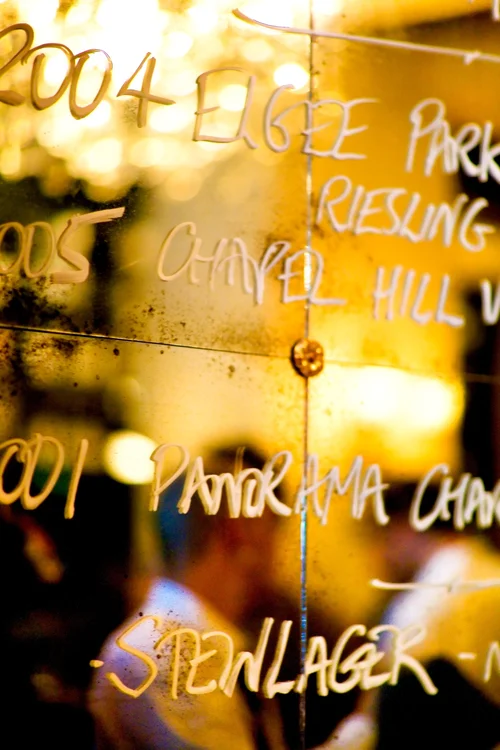 2004 ELGEE PARK
RIESLING
005 CHAPEL HILL V
001 PANORAMA CHA
-STEINLAGER -